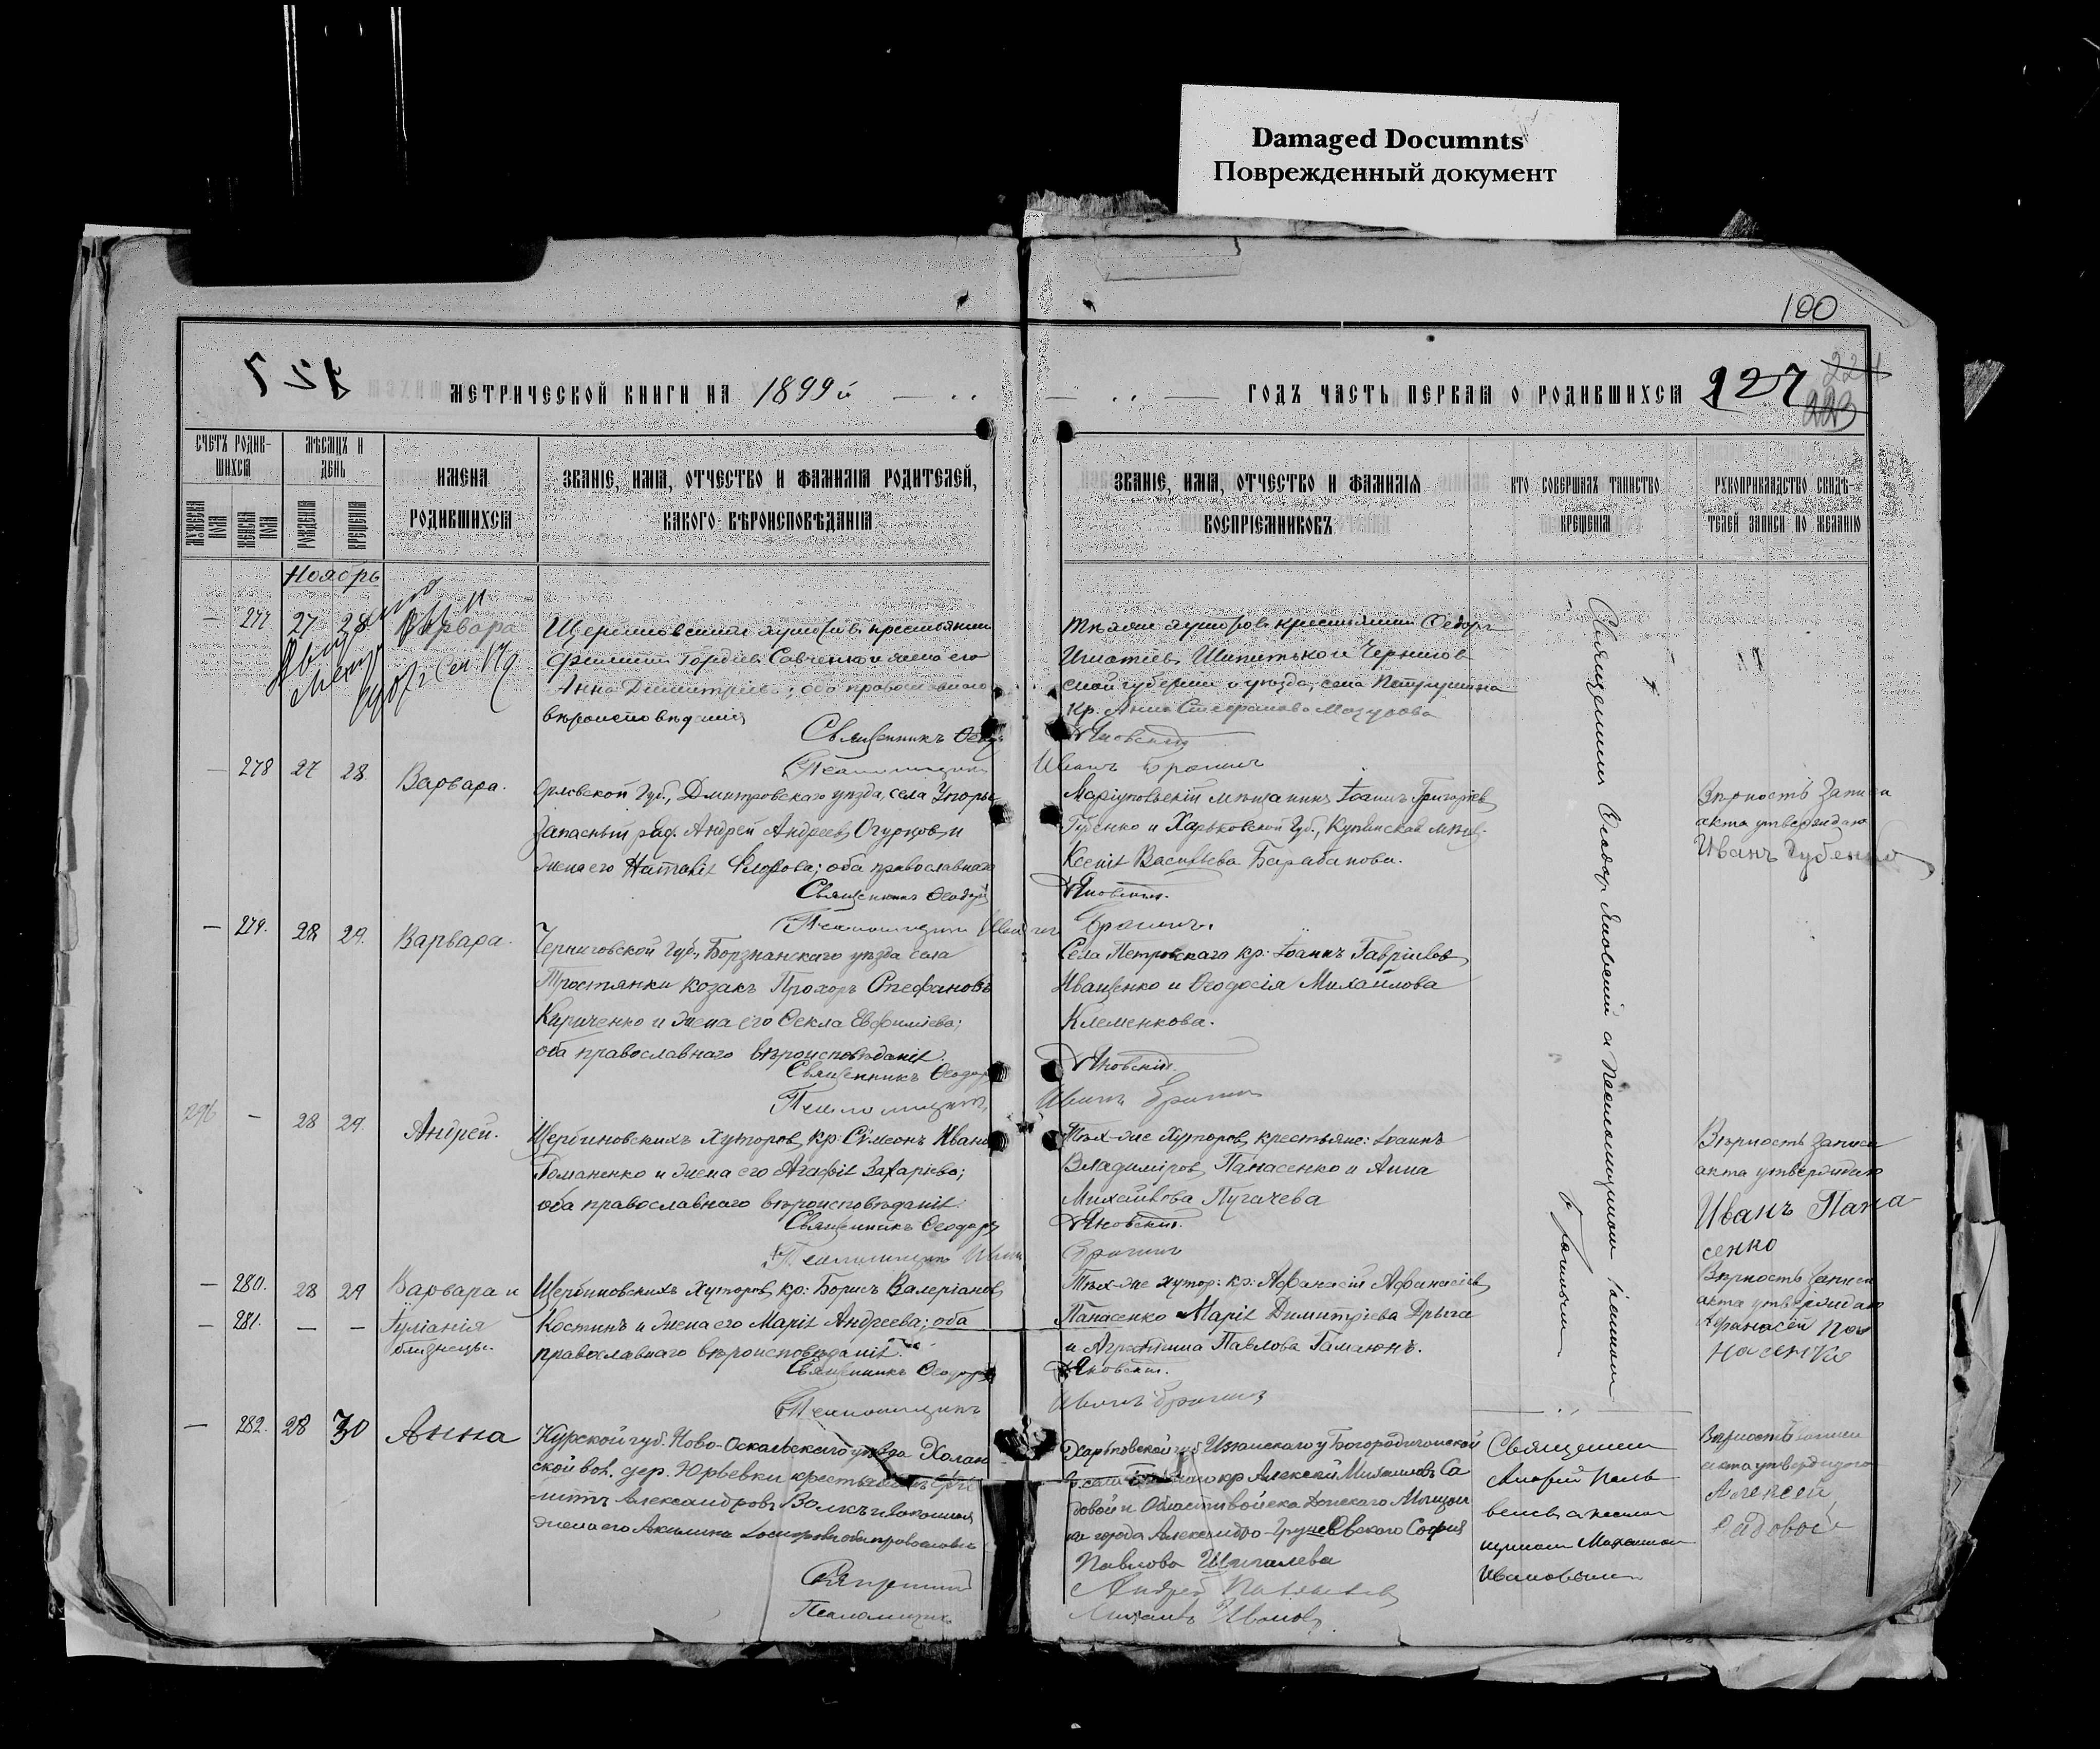 Damaged Documnts
Поврежденный документ
100
МЕТРИЧЕСКОЙ КНИГИ НА 1899й
ГОДЪ ЧАСТЬ ПЕРВАЯ О РОДИВШИХСЯ 227
224
223
СЧЕТЪ РОДИВ-
ШИХСЯ
МУЖЕСКА ПОЛА
ЖЕНСКА ПОЛА
МѢСЯЦЪ И
ДЕНЬ
РОЖДЕНІЯ
КРЕЩЕНІЯ
ИМЕНА
РОДИВШИХСЯ
ЗВАНІЕ, ИМЯ, ОТЧЕСТВО И ФАМИЛІЯ РОДИТЕЛЕЙ,
КАКОГО ВѢРОИСПОВѢДАНІЯ
ЗВАНІЕ, ИМЯ, ОТЧЕСТВО И ФАМИЛІЯ
ВОСПРІЕМНИКОВЪ
КТО СОВЕРШАЛЪ ТАИНСТВО
КРЕЩЕНІЯ
РУКОПРИКЛАДСТВО СВИДѢ-
ТЕЛЕЙ ЗАПИСИ ПО ЖЕЛАНІЮ
Ноябрь
— 277 27 28 Варвара
Щербиновскихъ хуторовъ крестьянинъ
Филиппъ Гордіевъ Савченко и жена его
Анна Димитріева; оба православнаго
вѣроисповѣданія
Священникъ Ѳеодоръ
Псаломщикъ
Тѣхъ же хуторовъ крестьянинъ Ѳедоръ
Игнатіевъ Шипитько и Чернигов
ской губерніи и уѣзда, села Петрушина
кр. Анна Стефанова Мазурова
Яновскій
Иванъ Брагинъ
Священникъ Ѳеодоръ Яновскій и Псаломщикъ Іоаннъ
Брагинъ
— 278 27 28. Варвара.
Орловской Губ., Дмитровскаго уѣзда, села
Запасный ряд. Андрей Андреевъ Огурцовъ и
жена его Наталія Флорова; оба православнаго
Священникъ Ѳеодоръ
Псаломщикъ Иванъ
Маріупольскій мѣщанинъ Іоаннъ Григоріевъ
Губенко и Харьковской Губ., Купянская мѣщ.
Ксенія Васильева Барабанова.
Яновскій.
Брагинъ.
Вѣрность записи
акта утверждаю
Иванъ Губенко
— 279. 28 29. Варвара.
Черниговской Губ., Борзнанскаго уѣзда села
Тростянки козакъ Прохоръ Стефановъ
Кириченко и жена его Ѳекла Евфиміева;
оба православнаго вѣроисповѣданія.
Священникъ Ѳеодоръ
Псаломщикъ
Села Петровскаго кр: Іоаннъ Гавріиловъ
Иващенко и Ѳеодосія Михайлова
Клеменкова.
Яновскій.
Иванъ Брагинъ
296 — 28 29. Андрей.
Щербиновскихъ Хуторовъ, кр: Сѵмеонъ Ивановъ
Романенко и жена его Агафія Захаріева;
оба православнаго вѣроисповѣданія.
Священникъ Ѳеодоръ
Псаломщикъ Иванъ
Тѣхъ-же Хуторовъ, крестьяне: Іоаннъ
Владиміровъ Панасенко и Анна
Михайлова Пугачева
Яновскій.
Брагинъ
Вѣрность записи
акта утверждаю
Иванъ Пана
сенко
— 280. 28 29 Варвара и
— 281. — — Іуліанія
близнецы.
Щербиновскихъ Хуторовъ, кр: Борисъ Валеріановъ
Костинъ и жена его Марія Андреева; оба
православнаго вѣроисповѣданія.
Священникъ Ѳеодоръ
Псаломщикъ
Тѣхъ-же хутор: кр: Аѳанасій Аѳанасіевъ
Панасенко Марія Димитріева Дрыга
и Агрипина Павлова Гамаюнъ.
Яновскій.
Иванъ Брагинъ
Вѣрность записи
акта утверждаю
Афанасей Па
насенка
— 282. 28 30 Анна
Курской губ. Ново-Оскольскаго уѣзда Халан
ской вол. дер. Юрьевки крестьянинъ
Александровъ Волковъ и законная
жена его Акилина
Священникъ
Псаломщикъ
Харьковской губ Изюмскаго у Богородичанской
в. села кр Алексѣй Михаиловъ Са
довой и Области войска Донскаго
ка города Александро-Грушевскаго Софія
Павлова Шигалева
Андрей
Михаилъ Ивановъ
Священникъ
Андрей
Вѣрность записи
акта утверждаю
Алексей
Садовой